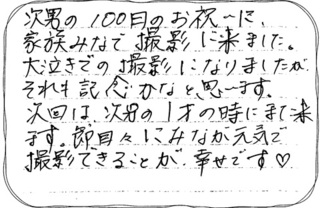 次男の100日のお祝いに、
家族みなで撮影に来ました。
大泣きでの撮影になりましたが
それも記念かなと思います。
次回は、次男の1才の時にまた来
ます。節目々にみなが元気で
撮影できることが、幸せです♡